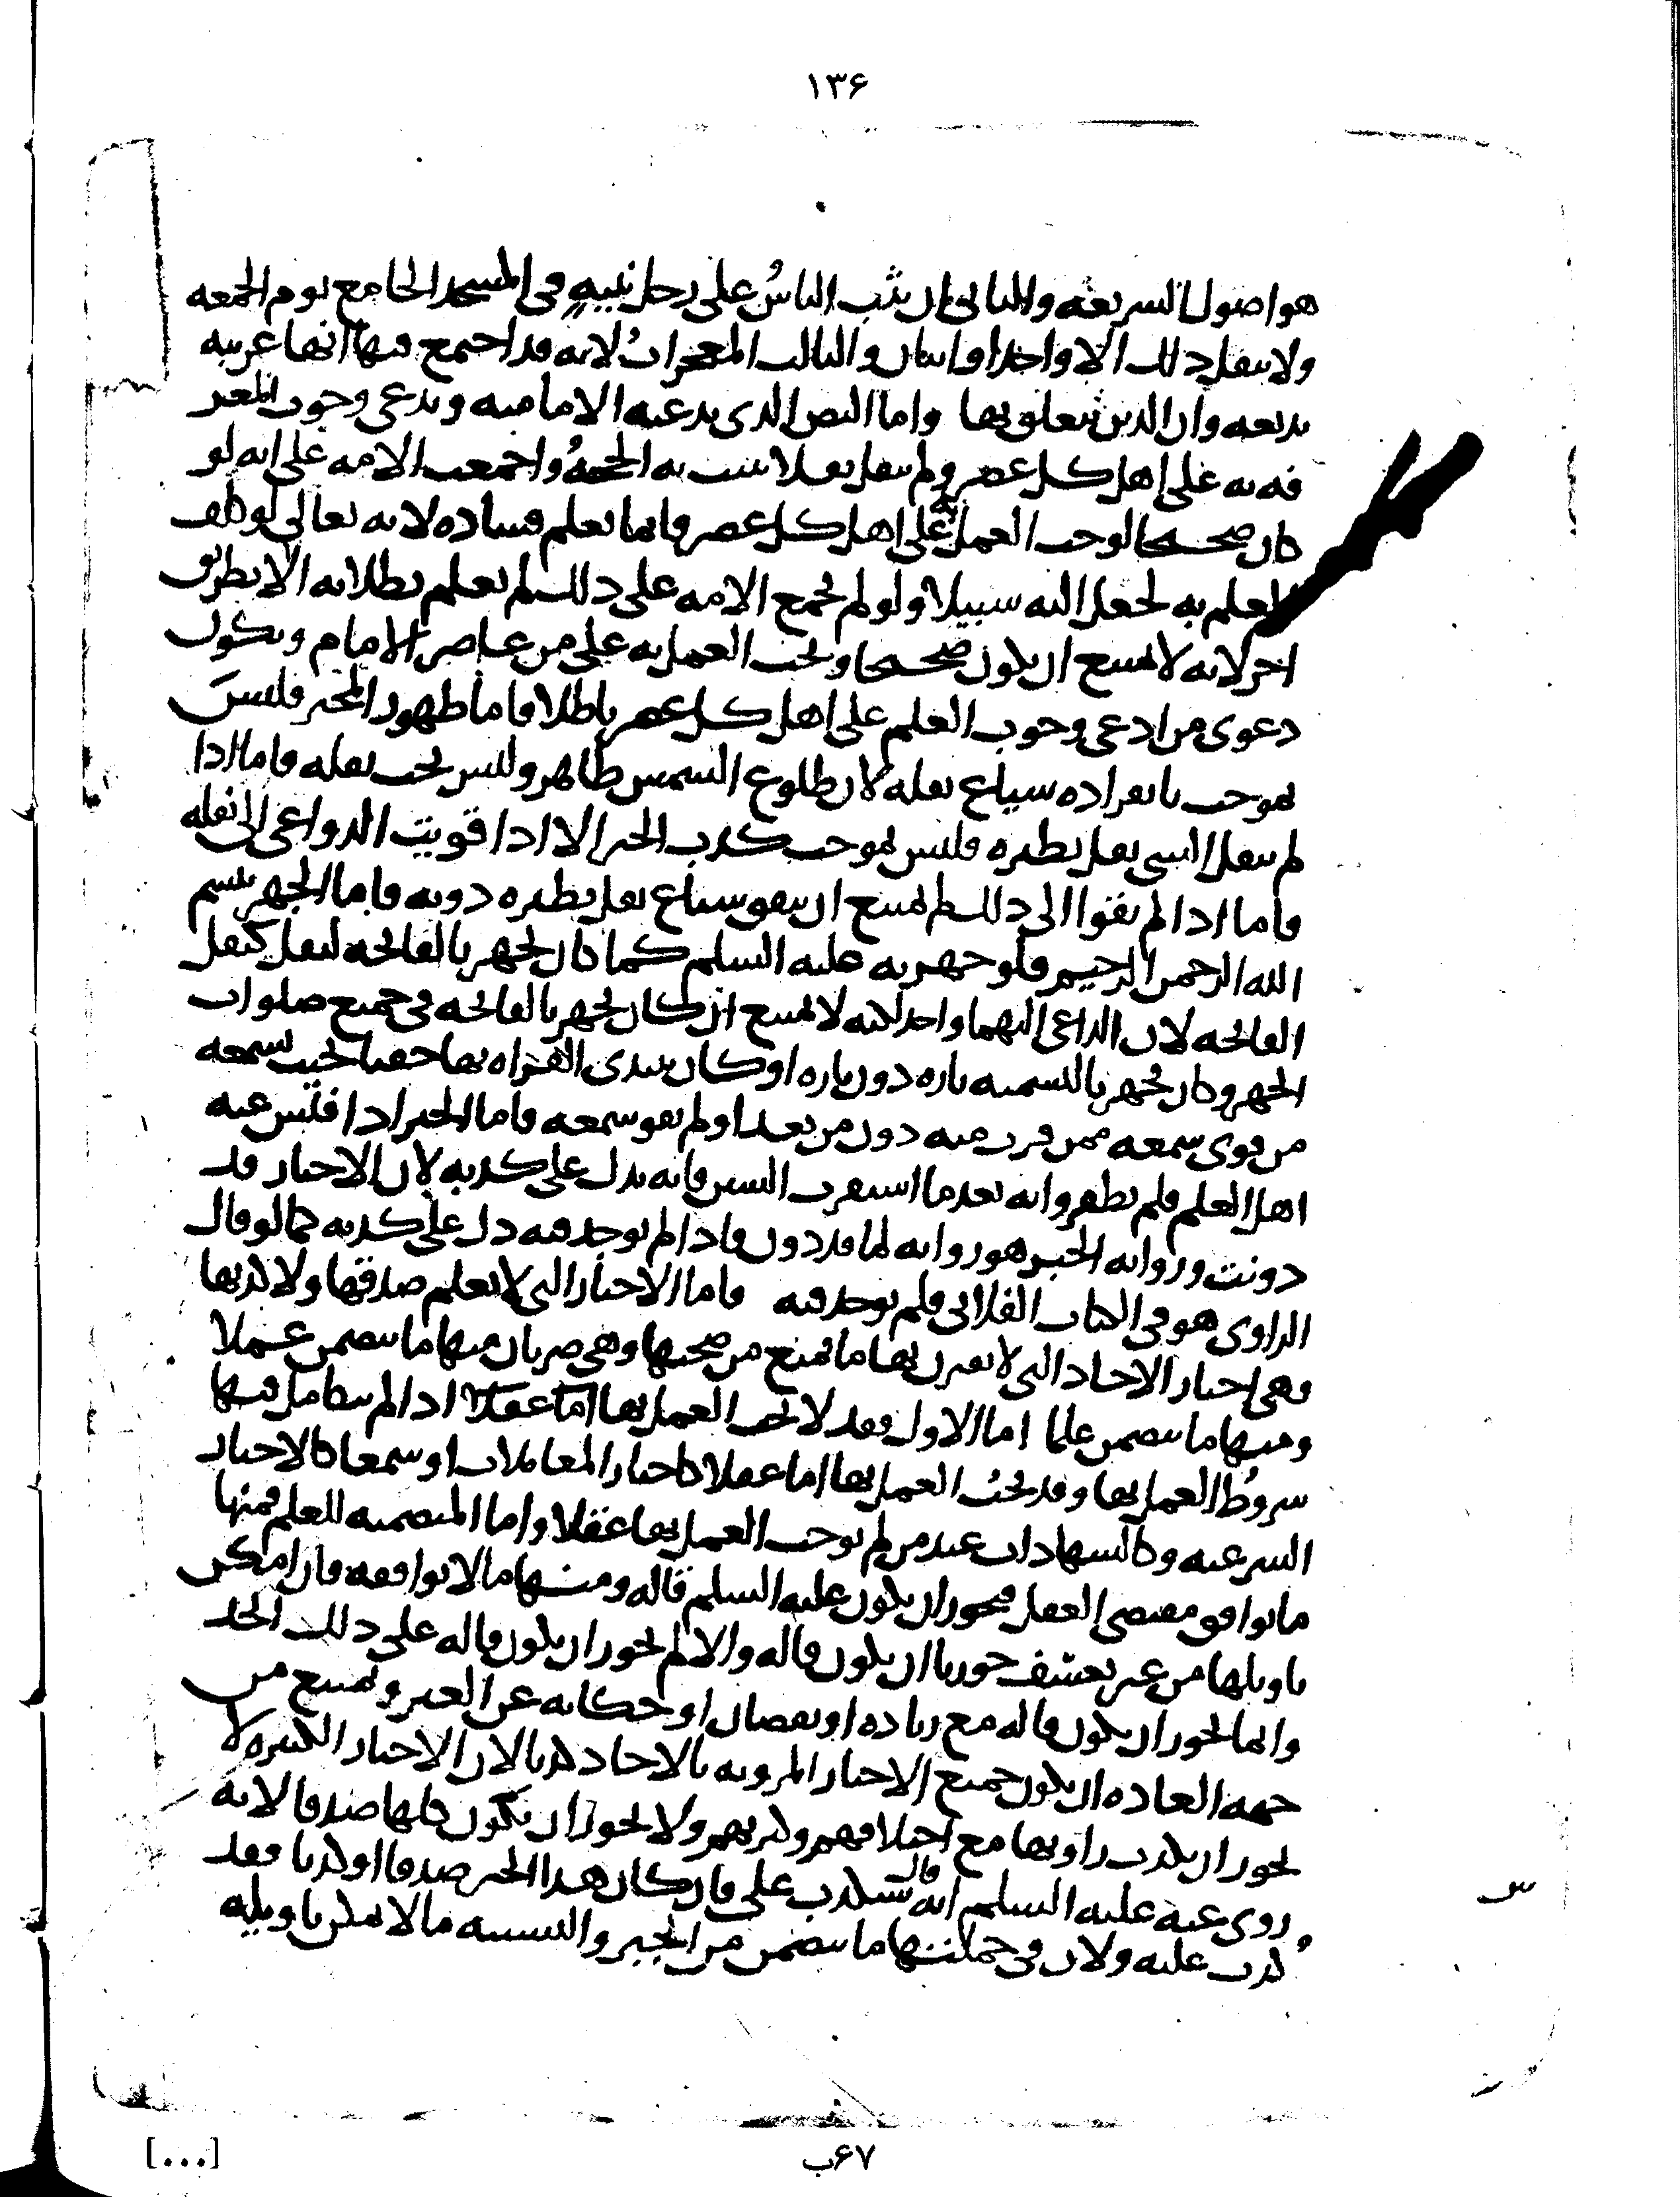 ١٣۶
هو اصول الشريعه والثاني ان يثب الناسُ على رجل نبيهٍ في المسجد الجامع يوم الجمعه
ولا ينقل ذلك الا واحد او اثنان والثالث المعجزاتُ لانه قد اجتمع فيها انها غريبه
بديعه وان الدين يتعلق بها واما النص الذي يدعيه الاماميه ويدعي وجوب المعر
فه به على اهل كل عصر ولم ينقل نقلا تثبت به الحجهُ واجمعت الامه على انه لو
كان صحيحا لوجب العمل به على اهل كل عصر فانما نعلم فساده لانه تعالى لو كلف
العلم به لجعل اليه سبيلا ولو لم تجمع الامه على ذلك لم نعلم بطلانه الا بطريق
اخر لانه لا يمتنع ان يكون صحيحا ويجب العمل به على من عاصر الامام ويكون
دعوى من ادعى وجوب العلم على اهل كل عصر باطلا فاما ظهور المخبر فليس
بموجب بانفراده شياع نقله لان طلوع الشمس ظاهر وليس يجب نقله فاما اذا
لم ينقل الشي نقل نظيره فليس بموجب كذب الخبر الا اذا قويت الدواعي الى نقله
فاما اذا لم تقوا الى ذلك لم يمتنع ان يتفق شياع نقل نظيره دونه فاما الجهر بسم
الله الرحمن الرحيم فلو جهر به عليه السلم كما كان يجهر بالفاتحه لنقل كنقل
الفاتحه لان الداعي اليهما واحد لكنه لا يمتنع ان كان يجهر بالفاتحه في جميع صلوات
الجهر وكان يجهر بالتسميه تاره دون تاره او كان يبتدي القراه بها خفيا بحيث يسمعه
من قوي سمعه ممن قرب منه دون من بعد او لم يقو سمعه فاما الخبر اذا فتش عنه
اهل العلم فلم يظفروا به بعد ما استقرت السنن فانه يدل على كذبه لان الاخبار قد
دونت وروايه الخبر هو روايه لما قد دون فاذا لم يوجد فيه دل على كذبه كما لو قال
الراوي هو في الكتاب الفلاني فلم يوجد فيه فاما الاخبار التي لا نعلم صدقها ولا كذبها
فهي اخبار الاحاد التي لا يقترن بها ما يمنع من صحتها وهي ضربان منها ما يتضمن عملا
ومنها ما يتضمن علما اما الاول فقد لا يجب العمل بها اما عقلا اذا لم يتكامل فيها
شروطُ العمل بها وقد يجب العمل بها اما عقلا كاخبار المعاملات او سمعا كالاخبار
الشرعيه وكالشهادات عند من لم يوجب العمل بها عقلا واما المتضمنه للعلم فمنها
ما يوافق مقتضى العقل فيجوز ان يكون عليه السلم قاله ومنها ما لا يوافقه فان امكن
تاويلها من غير تعسف جوزنا ان يكون قاله والا لم يجوز ان يكون قاله على ذلك الحد
وانما يجوز ان يكون قاله مع زياده او نقصان او حكايه عن الغير ويمتنع من
جهه العاده ان يكون جميع الاخبار المرويه بالاحاد كذبا لان الاخبار الكثيره لا
يجوز ان يكذب راويها مع اختلافهم وكثرتهم ولا يجوز ان يكون كلها صدقا لانه
روي عنه عليه السلم انه قال سيكذب علي فان كان هذا الخبر صدقا او كذبا فقد
كذب عليه ولان في جملتها ما يتضمن من الجبر والتشبيه ما لا يمكن تاويله
س
۶٧ب
[...]